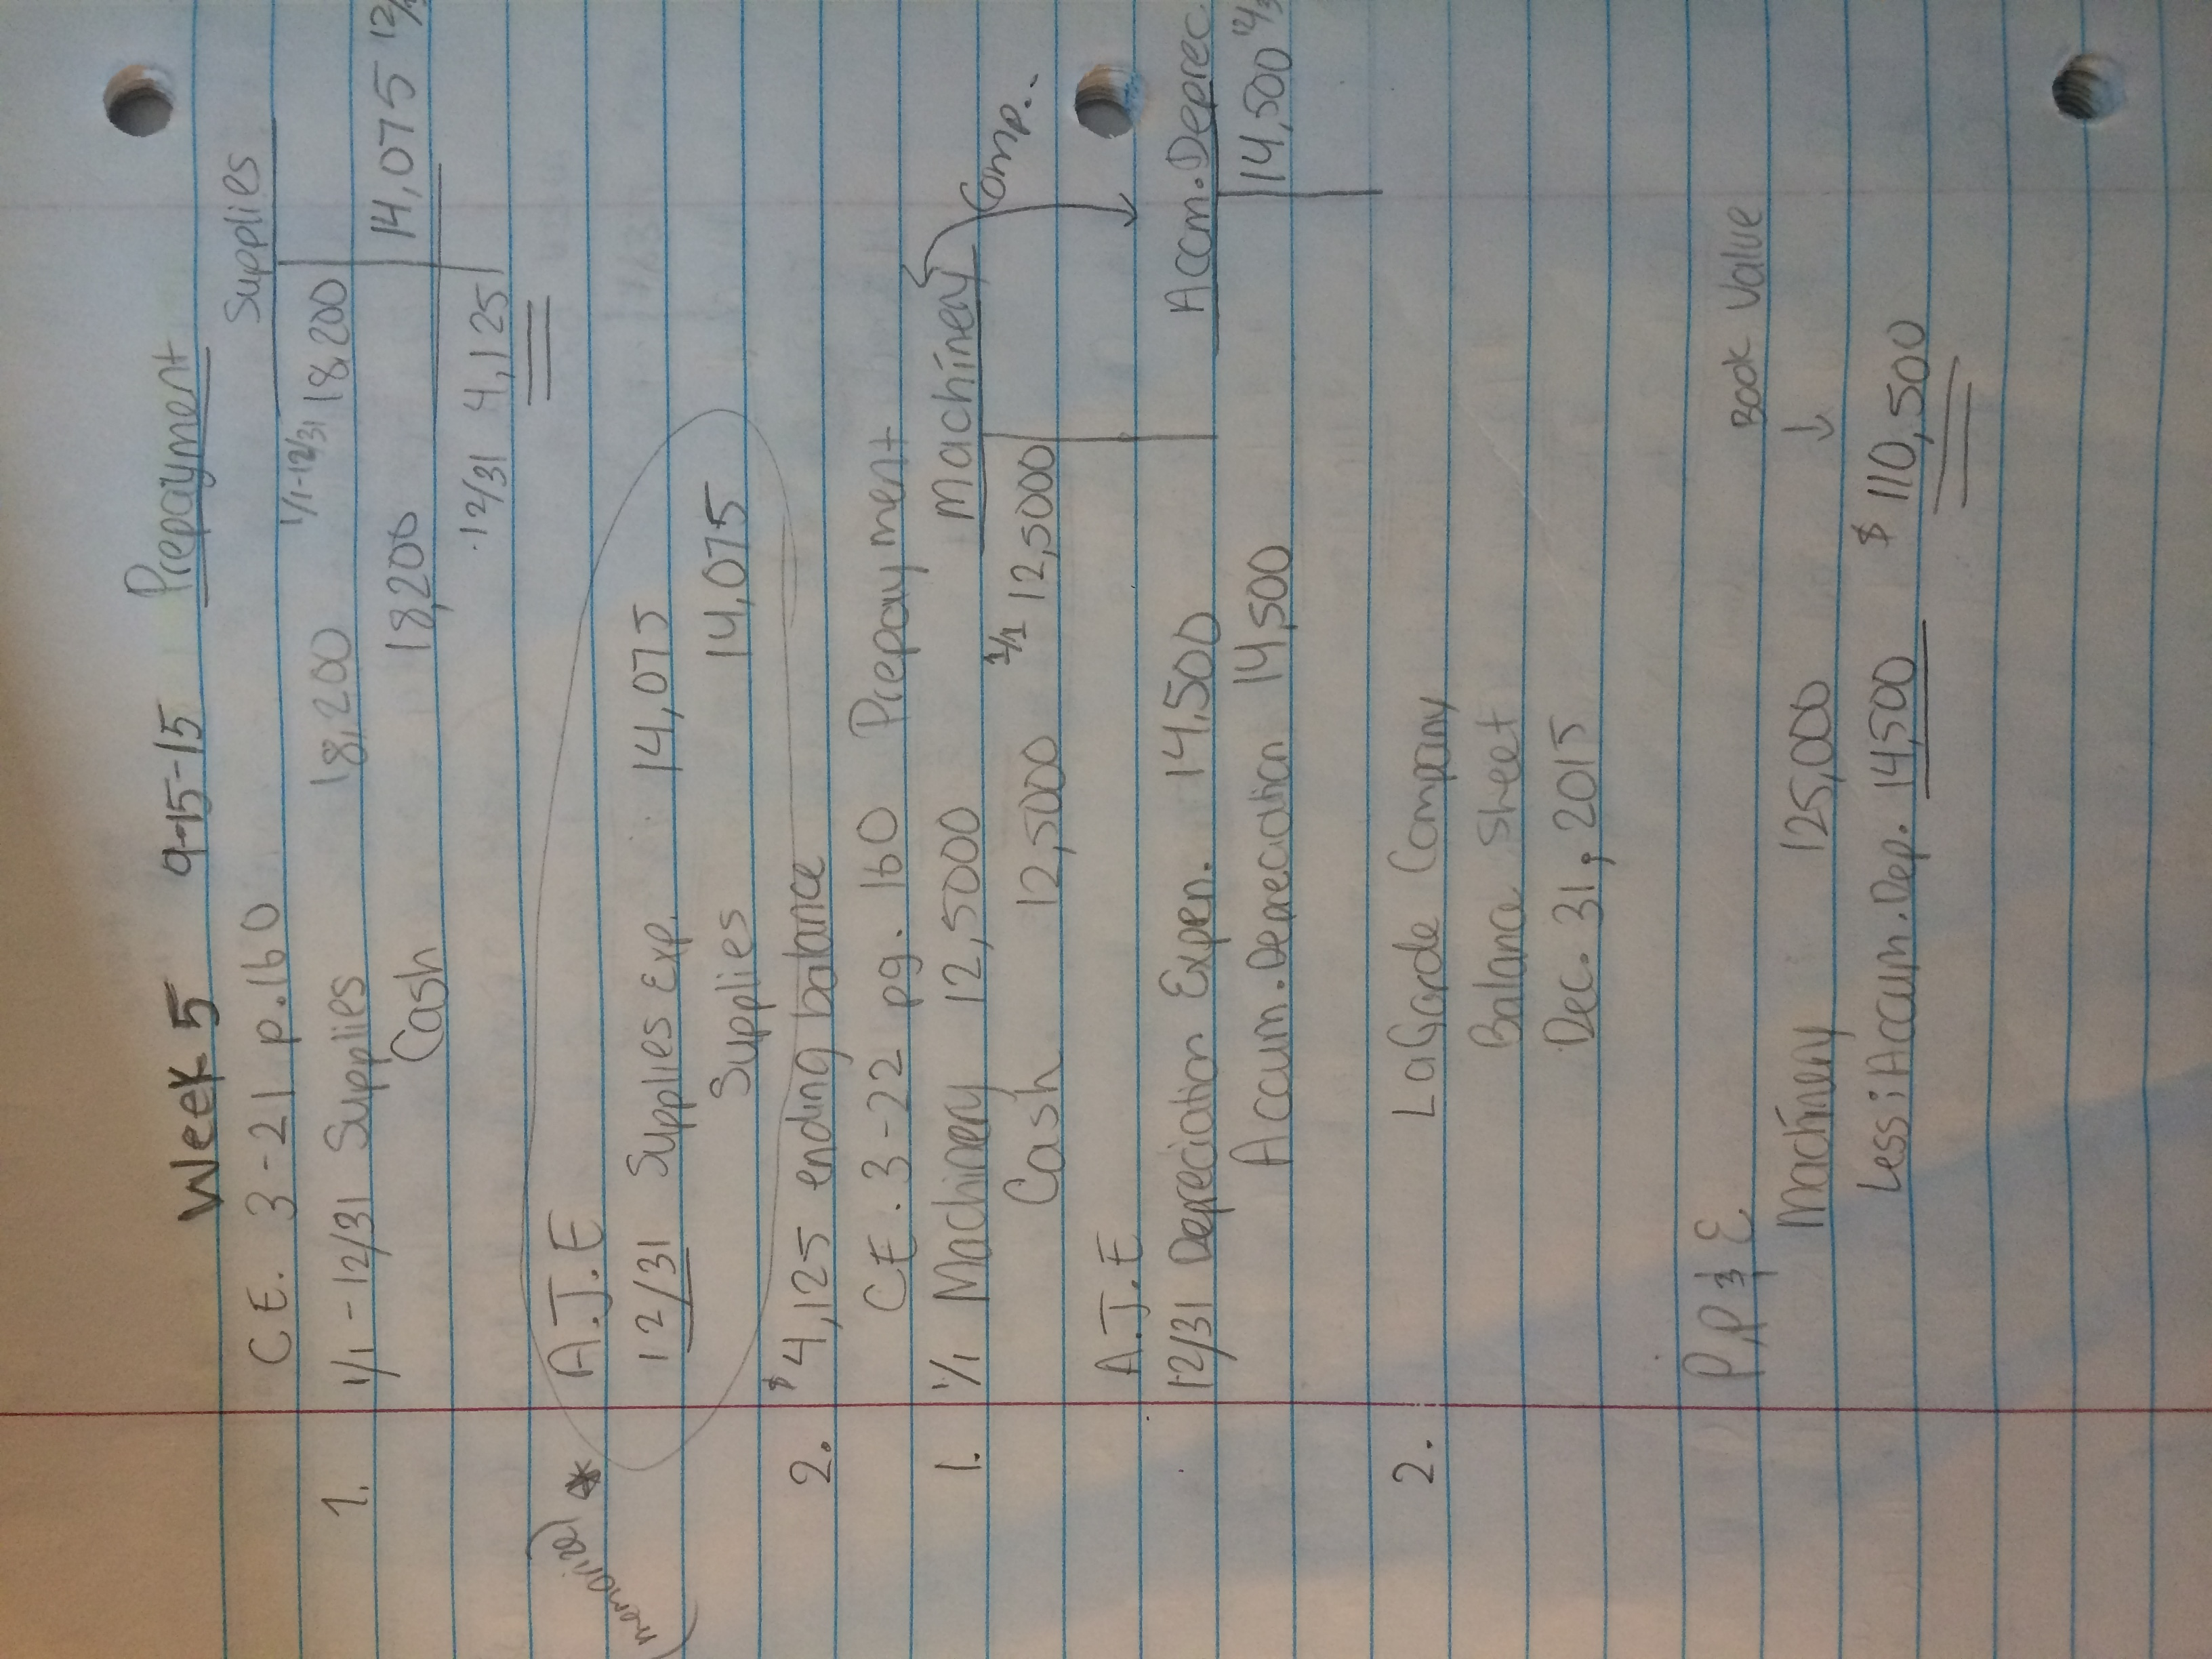 Week 5 9-15-15 Prepayment
C.E. 3-21 p.160 Supplies
1. 1/1-12/31 Supplies 18,200 1/1-12/31 18,200
Cash 18,200 14,075
12/31 4,125
(memorize) * A.J.E
12/31 Supplies Exp. 14,075
Supplies 14,075
2. $4,125 ending balance
C.E. 3-22 pg. 160 Prepayment
1. 1/1 Machinery 12,5000 Machinery
Cash 12,5000 1/1 12,5000 Comp..
A.J.E
12/31 Depreciation Expen. 14,500 Accm.Deprec.
Accum.Depreciation 14,500 14,500
2. LaGarde Company
Balance Sheet
Dec. 31, 2015
P,P & E Book Value
Machinery 125,000 ↓
Less: Accum.Dep. 14,500 $ 110,500